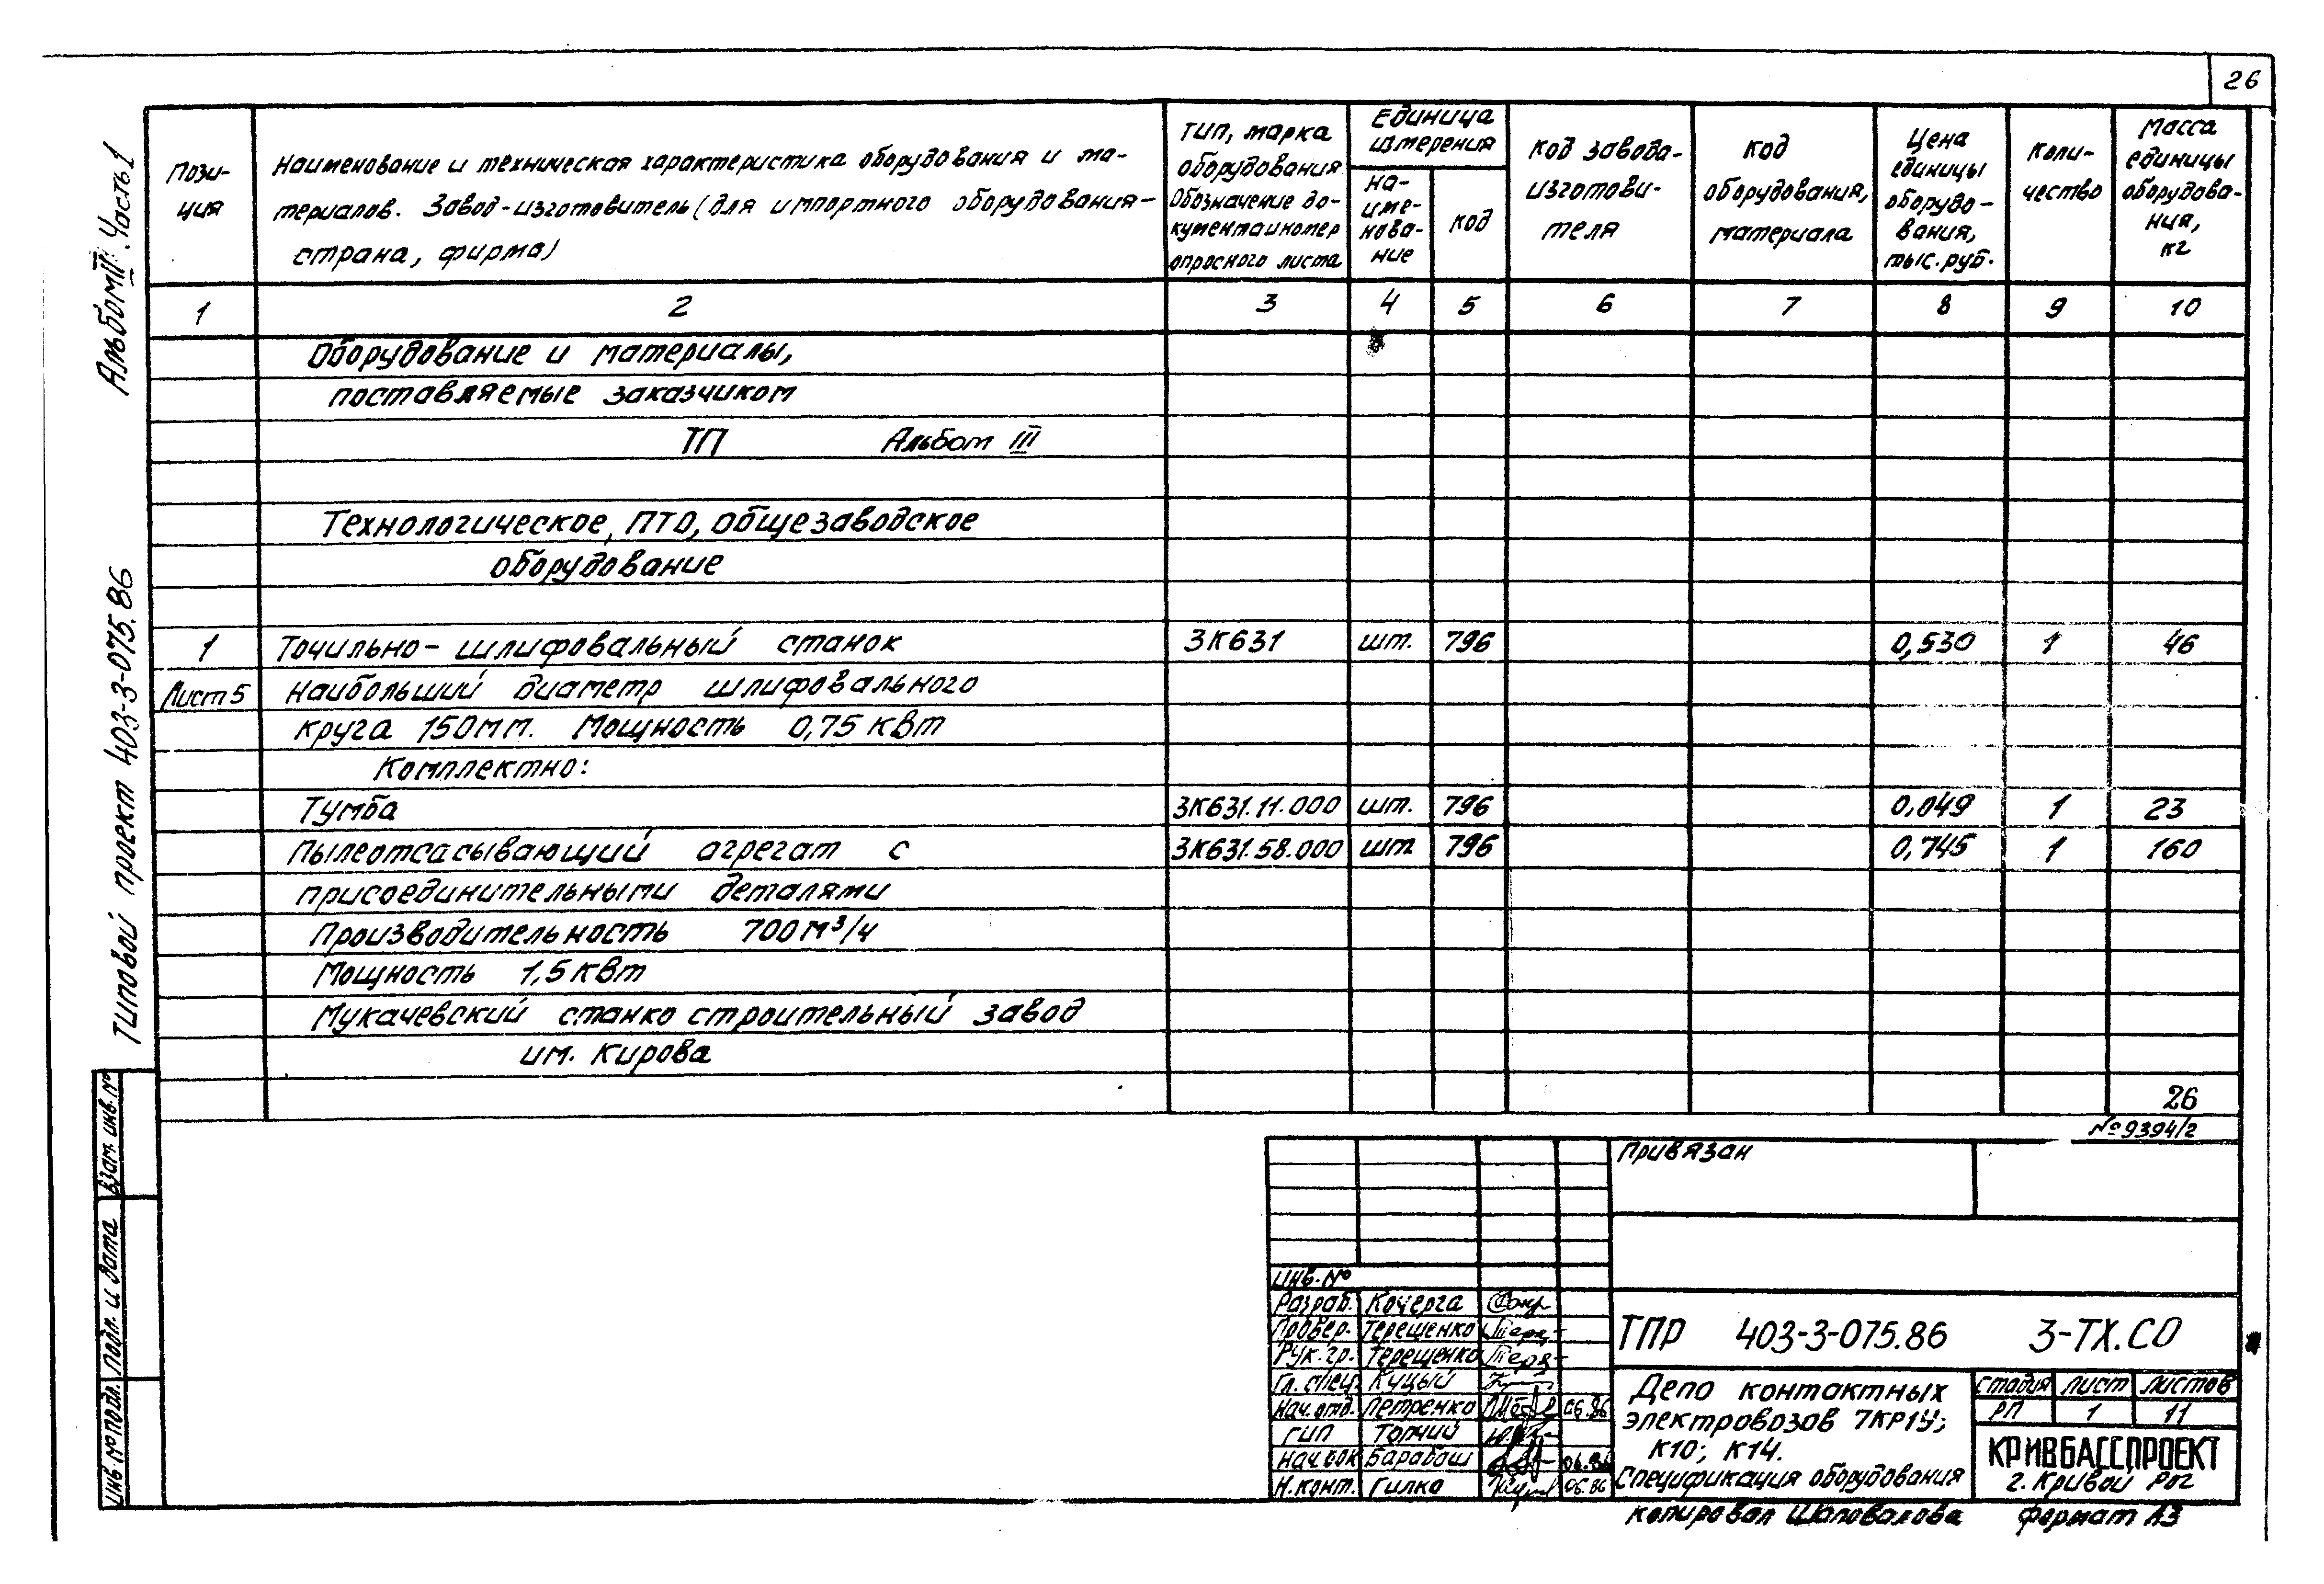 26
Альбом III. Часть 1
Типовой проект 403-3-075.86
Пози-
ция
Наименование и техническая характеристика оборудования и ма-
териалов. Завод-изготовитель (для импортного оборудования-
страна, фирма)
Тип, марка
оборудования.
Обозначение до-
кумента и номер
опросного листа
Единица
измерения
На-
име-
нова-
ние
Код
Код завода-
изготови-
теля
Код
оборудования,
материала
Цена
единицы
оборудо-
вания,
тыс. руб.
Коли-
чество
Масса
единицы
оборудова-
ния,
кг
1 2 3 4 5 6 7 8 9 10
Оборудование и материалы,
поставляемые заказчиком
ТП Альбом III
Технологическое, ПТО, общезаводское
оборудование
1 Точильно-шлифовальный станок 3К631 шт. 796 0,530 1 46
Лист 5 Наибольший диаметр шлифовального
круга 150мм. Мощность 0,75 квт
Комплектно:
Тумба 3К631.11.000 шт. 796 0,049 1 23
Пылеотсасывающий агрегат с 3К631.58.000 шт 796 0,745 1 160
присоединительными деталями
Производительность 700 м³/ч
Мощность 1,5 квт
Мукачевский станкостроительный завод
им. Кирова
26
№ 9394/2
Взам. инв. №
Подп. и дата
Инв. № подл.
Привязан
Инв. №
Разраб. Кочерга
Провер. Терещенко
Рук. гр. Терещенко
Гл. спец. Куцый
Нач. отд. Петренко 06.86
ГИП Топчий
Нач. ОК Барабаш 06.86
Н. конт. Гилко 06.86
ТПР 403-3-075.86 3-ТХ.СО
Депо контактных
электровозов 7КР1У;
К10; К14.
Спецификация оборудования
Стадия Лист Листов
РП 1 11
КРИВБАССПРОЕКТ
г. Кривой Рог
Копировал Шаповалова Формат А3